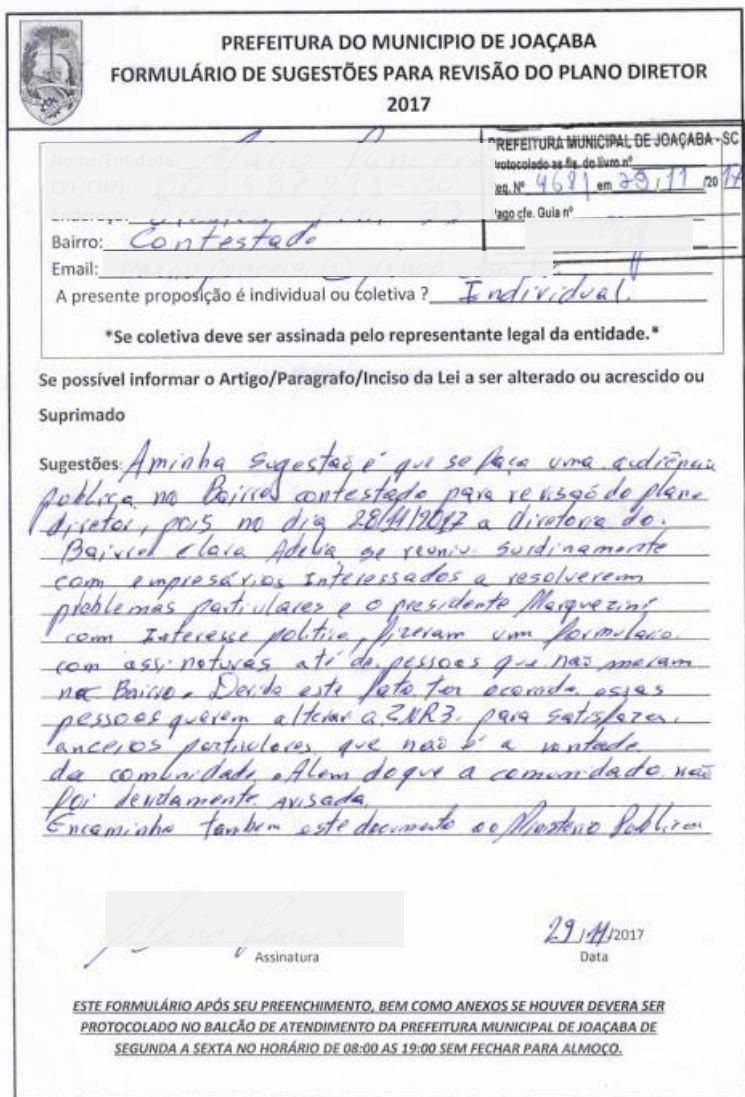 PREFEITURA DO MUNICIPIO DE JOAÇABA
FORMULÁRIO DE SUGESTÕES PARA REVISÃO DO PLANO DIRETOR
2017
PREFEITURA MUNICIPAL DE JOAÇABA - SC
Protocolado as fls. do livro nº
Req. Nº 4681 em 29/11/2017
Pago cfe. Guia nº
Nome/Entidade:
CPF/CNPJ:
Endereço:
Bairro: Contestado
Email:
A presente proposição é individual ou coletiva ? Individual.
*Se coletiva deve ser assinada pelo representante legal da entidade.*
Se possível informar o Artigo/Paragrafo/Inciso da Lei a ser alterado ou acrescido ou
Suprimado
Sugestões: Aminha Sugestão é que se faça uma audiência
pública no Bairro contestado para revisão do plano
diretor, pois no dia 28/11/2017 a diretoria do
Bairro Clara Adelia, se reuniu surdinamente
com empresários Interessados a resolverem
problemas particulares e o presidente Marquezini
com Interesse politico, fizeram um formulario
com assinaturas até de pessoas que não moram
no Bairro. Devido este fato ter ocorrido essas
pessoas querem alterar a ZNR3. para satisfazer
anceios particulares que não é a vontade
da comunidade. Alem do que a comunidade não
foi devidamente avisada.
Encaminho tambem este documento ao Ministerio Publico
Assinatura
29/11/2017
Data
ESTE FORMULÁRIO APÓS SEU PREENCHIMENTO, BEM COMO ANEXOS SE HOUVER DEVERA SER
PROTOCOLADO NO BALCÃO DE ATENDIMENTO DA PREFEITURA MUNICIPAL DE JOAÇABA DE
SEGUNDA A SEXTA NO HORÁRIO DE 08:00 AS 19:00 SEM FECHAR PARA ALMOÇO.